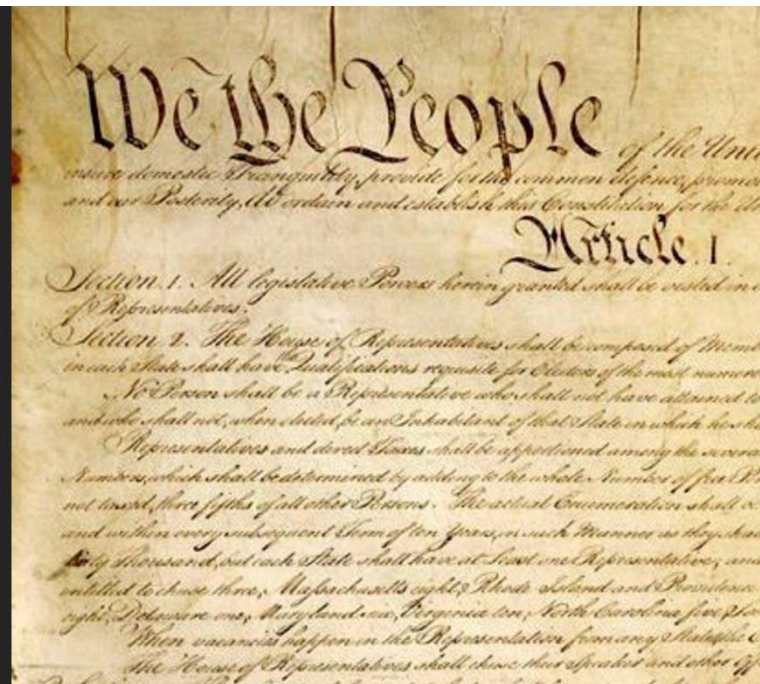 We the People of the Unit
insure domestic Tranquility, provide for the common defence, promo
and our Posterity, do ordain and establish this Constitution for the Un
Article. I.
Section. 1. All legislative Powers herein granted shall be vested in a
of Representatives.
Section. 2. The House of Representatives shall be composed of Memb
in each State shall have Qualifications requisite for Electors of the most numero
No Person shall be a Representative who shall not have attained to
and who shall not, when elected, be an Inhabitant of that State in which he sha
Representatives and direct Taxes shall be apportioned among the severa
Numbers, which shall be determined by adding to the whole Number of free P
not taxed, three fifths of all other Persons. The actual Enumeration shall
and within every subsequent Term of ten Years, in such Manner as they sha
thirty Thousand, but each State shall have at Least one Representative; and
entitled to chuse three, Massachusetts eight, Rhode Island and Providence
eight, Delaware one, Maryland six, Virginia ten, North Carolina five, Sou
When vacancies happen in the Representation from any State, the E
The House of Representatives shall chuse their Speaker and other Off